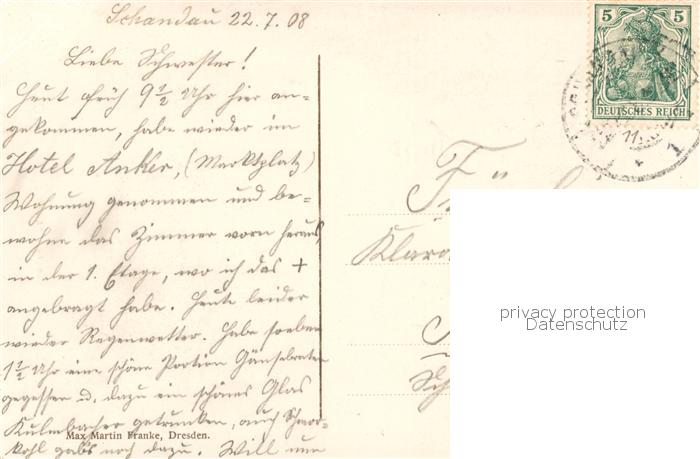 Schandau 22.7.08
Liebe Schwester!
Heut früh 9 1/2 Uhr hier an-
gekommen, habe wieder im
Hotel Anker, (Marktplatz)
Wohnung genommen und be-
wohne das Zimmer vorn heraus,
in der 1. Etage, wo ich das +
angebragt habe. Heute leider
wieder Regenwetter. Habe soeben
1 1/2 Uhr eine schöne Portion Gänsebraten
gegessen u. dazu ein schönes Glas
Kulmbacher getrunken, auch Schmor-
kohl gab's noch dazu. Will nun
Max Martin Franke, Dresden.
5 5
DEUTSCHES REICH
Klara
privacy protection
Datenschutz